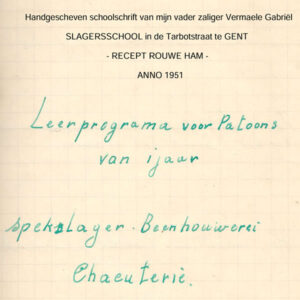 Handgescheven schoolschrift van mijn vader zaliger Vermaele Gabriël
SLAGERSSCHOOL in de Tarbotstraat te GENT
- RECEPT ROUWE HAM -
ANNO 1951
Leerprograma voor Patoons
van 1jaar
spekslager - Beenhouwerei
Chaeuterie.